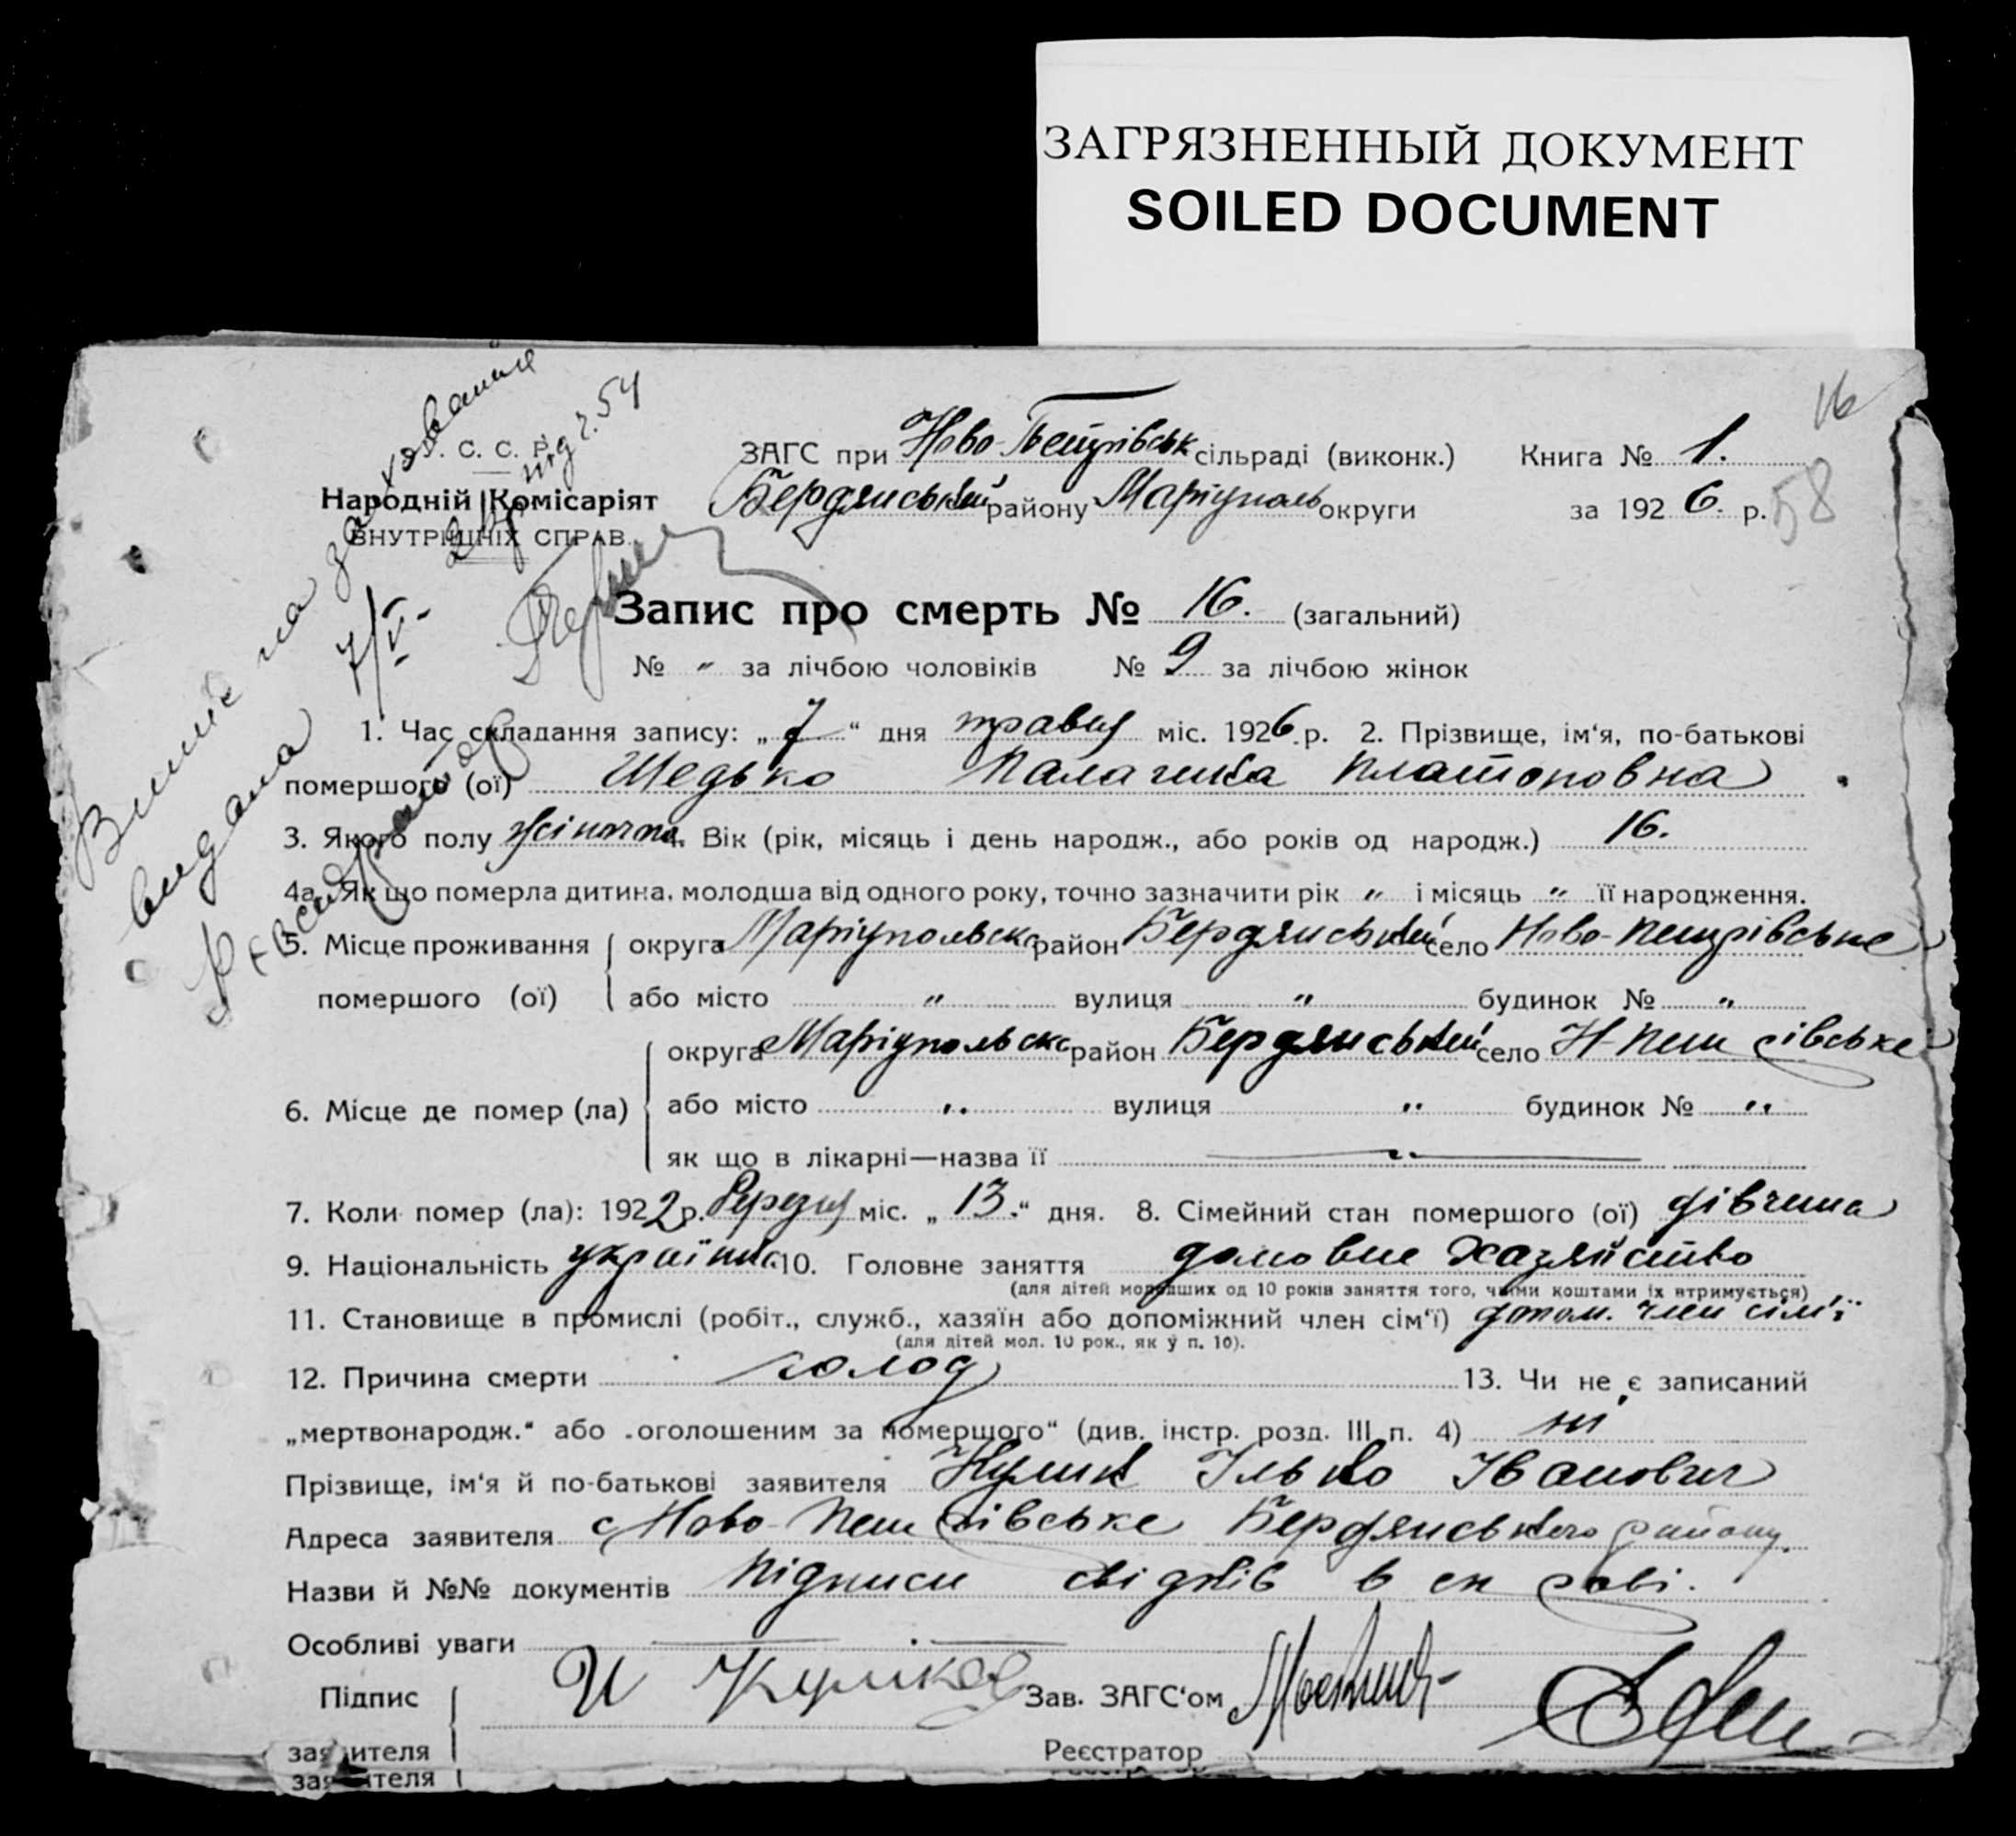 ЗАГРЯЗНЕННЫЙ ДОКУМЕНТ
SOILED DOCUMENT
16
С. С. Р.
Народній Комісаріят
ВНУТРІШНІХ СПРАВ.
ЗАГС при Ново-Петрівськ сільраді (виконк.) Книга № 1.
Бердянський району Маріуполь округи за 1926. р. 58
Запис про смерть № 16. (загальний)
№ " за лічбою чоловіків № 9 за лічбою жінок
1. Час складання запису: „7“ дня травня міс. 1926.р. 2. Прізвище, ім‘я, по-батькові
помершого (ої) Шедько Палагина Платоновна
3. Якого полу жіноча 4. Вік (рік, місяць і день народж., або років од народж.) 16.
4а. Як що померла дитина, молодша від одного року, точно зазначити рік " і місяць " її народження.
5. Місце проживання помершого (ої) округа Маріупольська район Бердянський село Ново-Петрівське
або місто " вулиця " будинок № "
6. Місце де помер (ла) округа Маріупольська район Бердянський село Н-Петрівське
або місто " вулиця " будинок № "
як що в лікарні—назва її "
7. Коли помер (ла): 1922 р. березня міс. „13.“ дня. 8. Сімейний стан помершого (ої) дівчина
9. Національність україн 10. Головне заняття домовне хазяйство
(для дітей молодших од 10 років заняття того, чиїми коштами їх втримується)
11. Становище в промислі (робіт., служб., хазяїн або допоміжний член сім‘ї) допом. член сім'ї
(для дітей мол. 10 рок., як у п. 10).
12. Причина смерти голод 13. Чи не є записаний
„мертвонародж.“ або „оголошеним за помершого“ (див. інстр. розд. III п. 4) ні
Прізвище, ім‘я й по-батькові заявителя Кулик Ілько Іванович
Адреса заявителя с Ново-Петрівське Бердянського району.
Назви й №№ документів підписи свідків в
Особливі уваги
Підпис заявителя И Куликов Зав. ЗАГС‘ом
Реєстратор
заявителя
Випис на
видана
7/V